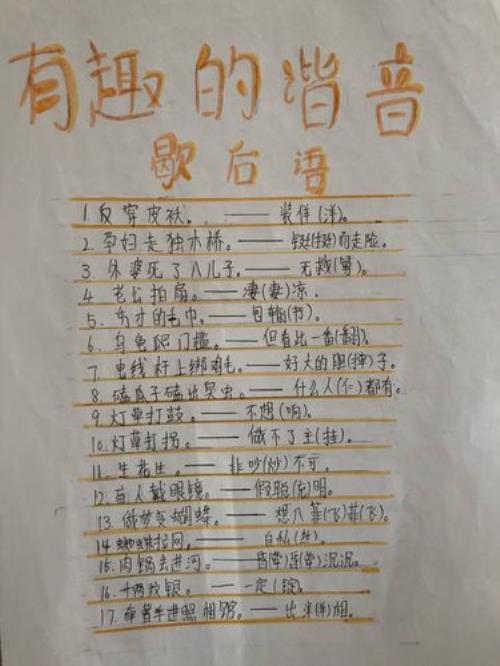 有趣的谐音
歇后语
1. 反穿皮袄。—— 装佯(洋)。
2. 孕妇走独木桥。—— 铤(挺)而走险。
3. 外婆死了儿子。—— 无救(舅)。
4. 老公拍扇。—— 凄(妻)凉.
5. 孔夫子的毛巾。—— 包输(书)。
6. 乌龟爬门槛。—— 但看此一番(翻)。
7. 电线杆上绑鸡毛。—— 好大的胆(掸)子。
8. 嗑瓜子嗑出臭虫。—— 什么人(仁)都有。
9. 灯草打鼓。—— 不想(响)。
10. 灯草打拐。—— 做不了主(拄)。
11. 生花生。—— 非吵(炒)不可。
12. 盲人戴眼镜。—— 假聪(充)明。
13. 做梦变蝴蝶。—— 想入菲(飞)菲(飞)。
14. 蜘蛛拉网。—— 自私(丝)。
15. 沉沉。
16. 一定(锭)。
17. 牵着羊进照相馆。—— 出洋(羊)相。